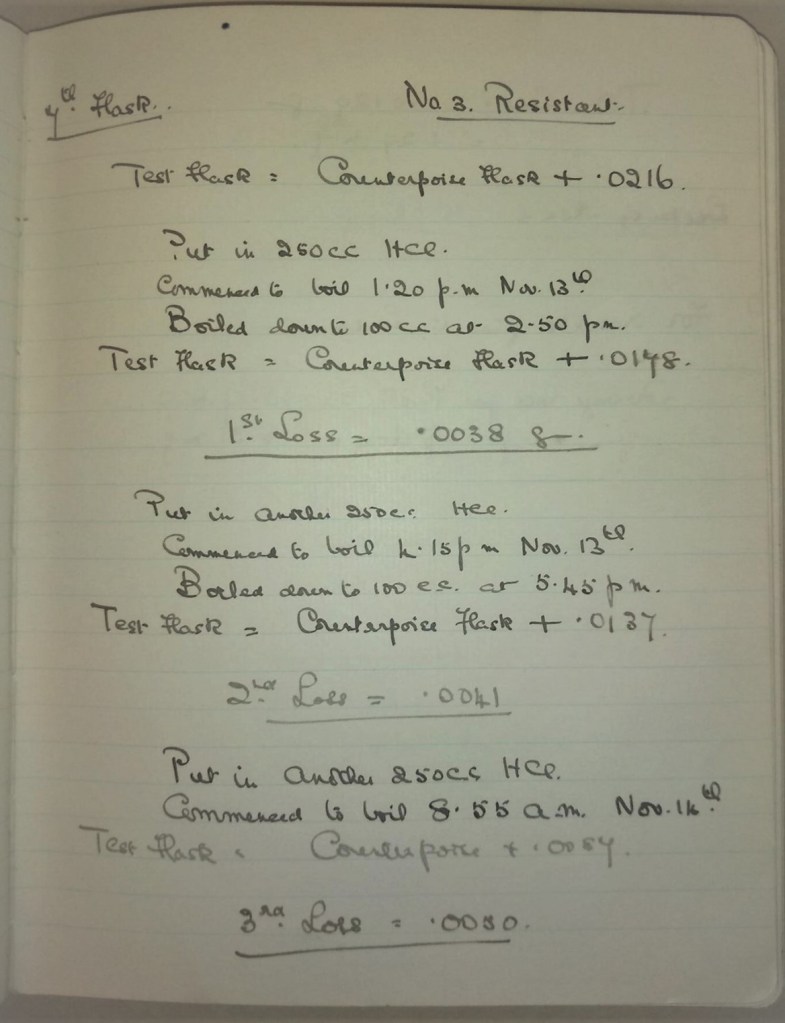 7th Flask.
No 3. Resistant.
Test Flask = Counterpoise Flask + .0216.
Put in 250cc HCl.
Commenced to boil 1.20 p.m Nov. 13th
Boiled down to 100 cc at 2.50 pm.
Test Flask = Counterpoise Flask + .0178.
1st Loss = .0038 g.
Put in another 250cc. HCl.
Commenced to boil 4.15 p m Nov. 13th.
Boiled down to 100 cc. at 5.45 p m.
Test Flask = Counterpoise Flask + .0137.
2nd Loss = .0041
Put in another 250cc HCl.
Commenced to boil 8.55 a.m. Nov. 14th.
Test Flask = Counterpoise + .0087.
3rd Loss = .0050.